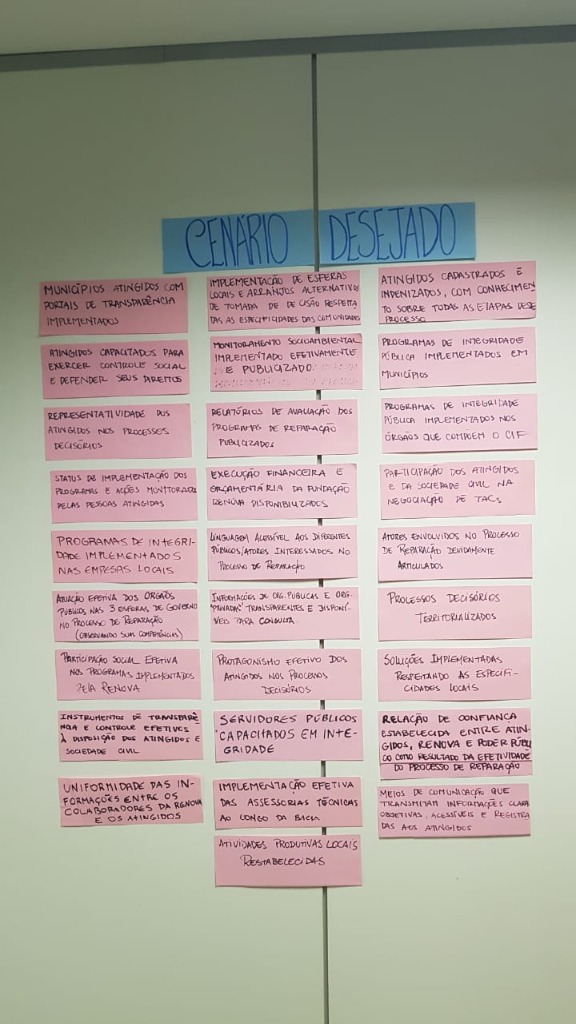 CENÁRIO DESEJADO
MUNICÍPIOS ATINGIDOS COM
PORTAIS DE TRANSPARÊNCIA
IMPLEMENTADOS
ATINGIDOS CAPACITADOS PARA
EXERCER CONTROLE SOCIAL
E DEFENDER SEUS DIREITOS
REPRESENTATIVIDADE DOS
ATINGIDOS NOS PROCESSOS
DECISÓRIOS
STATUS DE IMPLEMENTAÇÃO DOS
PROGRAMAS E AÇÕES MONITORADA
PELAS PESSOAS ATINGIDAS
PROGRAMAS DE INTEGRI-
DADE IMPLEMENTADOS
NAS EMPESAS LOCAIS
ATUAÇÃO EFETIVA DOS ÓRGÃOS
PÚBLICOS NAS 3 ESFERAS DE GOVERNO
NO PROCESSO DE REPARAÇÃO
(OBSERVANDO SUAS COMPETÊNCIAS)
PARTICIPAÇÃO SOCIAL EFETIVA
NOS PROGRAMAS IMPLEMENTADOS
PELA RENOVA
INSTRUMENTOS DE TRANSPARÊ
NCIA E CONTROLE EFETIVOS
À DISPOSIÇÃO DOS ATINGIDOS E
SOCIEDADE CIVIL
UNIFORMIDADE DAS IN-
FORMAÇÕES ENTRE OS
COLABORADORES DA RENOVA
E OS ATINGIDOS
IMPLEMENTAÇÃO DE ESFERAS
LOCAIS E ARRANJOS ALTERNATIVOS
DE TOMADA DE DECISÃO RESPEITA
DAS AS ESPECIFICIDADES DAS COMUNIDADES
MONITORAMENTO SOCIOAMBIENTAL
IMPLEMENTADO EFETIVAMENTE
E PUBLICIZADO
RELATÓRIOS DE AVALIAÇÃO DOS
PROGRAMAS DE REPARAÇÃO
PUBLICIZADOS
EXECUÇÃO FINANCEIRA E
ORÇAMENTÁRIA DA FUNDAÇÃO
RENOVA DISPONIBILIZADOS
LINGUAGEM ACESSÍVEL AOS DIFERENTES
PÚBLICOS/ATORES INTERESSADOS NO
PROCESSO DE REPARAÇÃO
INFORMAÇÕES DE ORG. PÚBLICAS E ORG.
"PRIVADAS" TRANSPARENTES E DISPONÍ
VEIS PARA CONSULTA.
PROTAGONISMO EFETIVO DOS
ATINGIDOS NOS PROCESSOS
DECISÓRIOS
SERVIDORES PÚBLICOS
CAPACITADOS EM INTE-
GRIDADE
IMPLEMENTAÇÃO EFETIVA
DAS ASSESSORIAS TÉCNICAS
AO LONGO DA BACIA
ATIVIDADES PRODUTIVAS LOCAIS
RESTABELECIDAS
ATINGIDOS CADASTRADOS E
INDENIZADOS, COM CONHECIMEN
TO SOBRE TODAS AS ETAPAS DESSE
PROCESSO
PROGRAMAS DE INTEGRIDADE
PÚBLICA IMPLEMENTADOS EM
MUNICÍPIOS
PROGRAMAS DE INTEGRIDADE
PÚBLICA IMPLEMENTADOS NOS
ÓRGÃOS QUE COMPÕEM O CIF
PARTICIPAÇÃO DOS ATINGIDOS
E DA SOCIEDADE CIVIL NA
NEGOCIAÇÃO DE TACS
ATORES ENVOLVIDOS NO PROCESSO
DE REPARAÇÃO DEVIDAMENTE
ARTICULADOS
PROCESSOS DECISÓRIOS
TERRITORIALIZADOS
SOLUÇÕES IMPLEMENTADAS
RESPEITANDO AS ESPECIFI-
CIDADES LOCAIS
RELAÇÃO DE CONFIANÇA
ESTABELECIDA ENTRE ATIN-
GIDOS, RENOVA E PODER PÚBLI
CO COMO RESULTADO DA EFETIVIDADE
DO PROCESSO DE REPARAÇÃO
MEIOS DE COMUNICAÇÃO QUE
TRANSMITAM INFORMAÇÕES CLARA
OBJETIVAS, ACESSÍVEIS E REGISTRA
DAS AOS ATINGIDOS